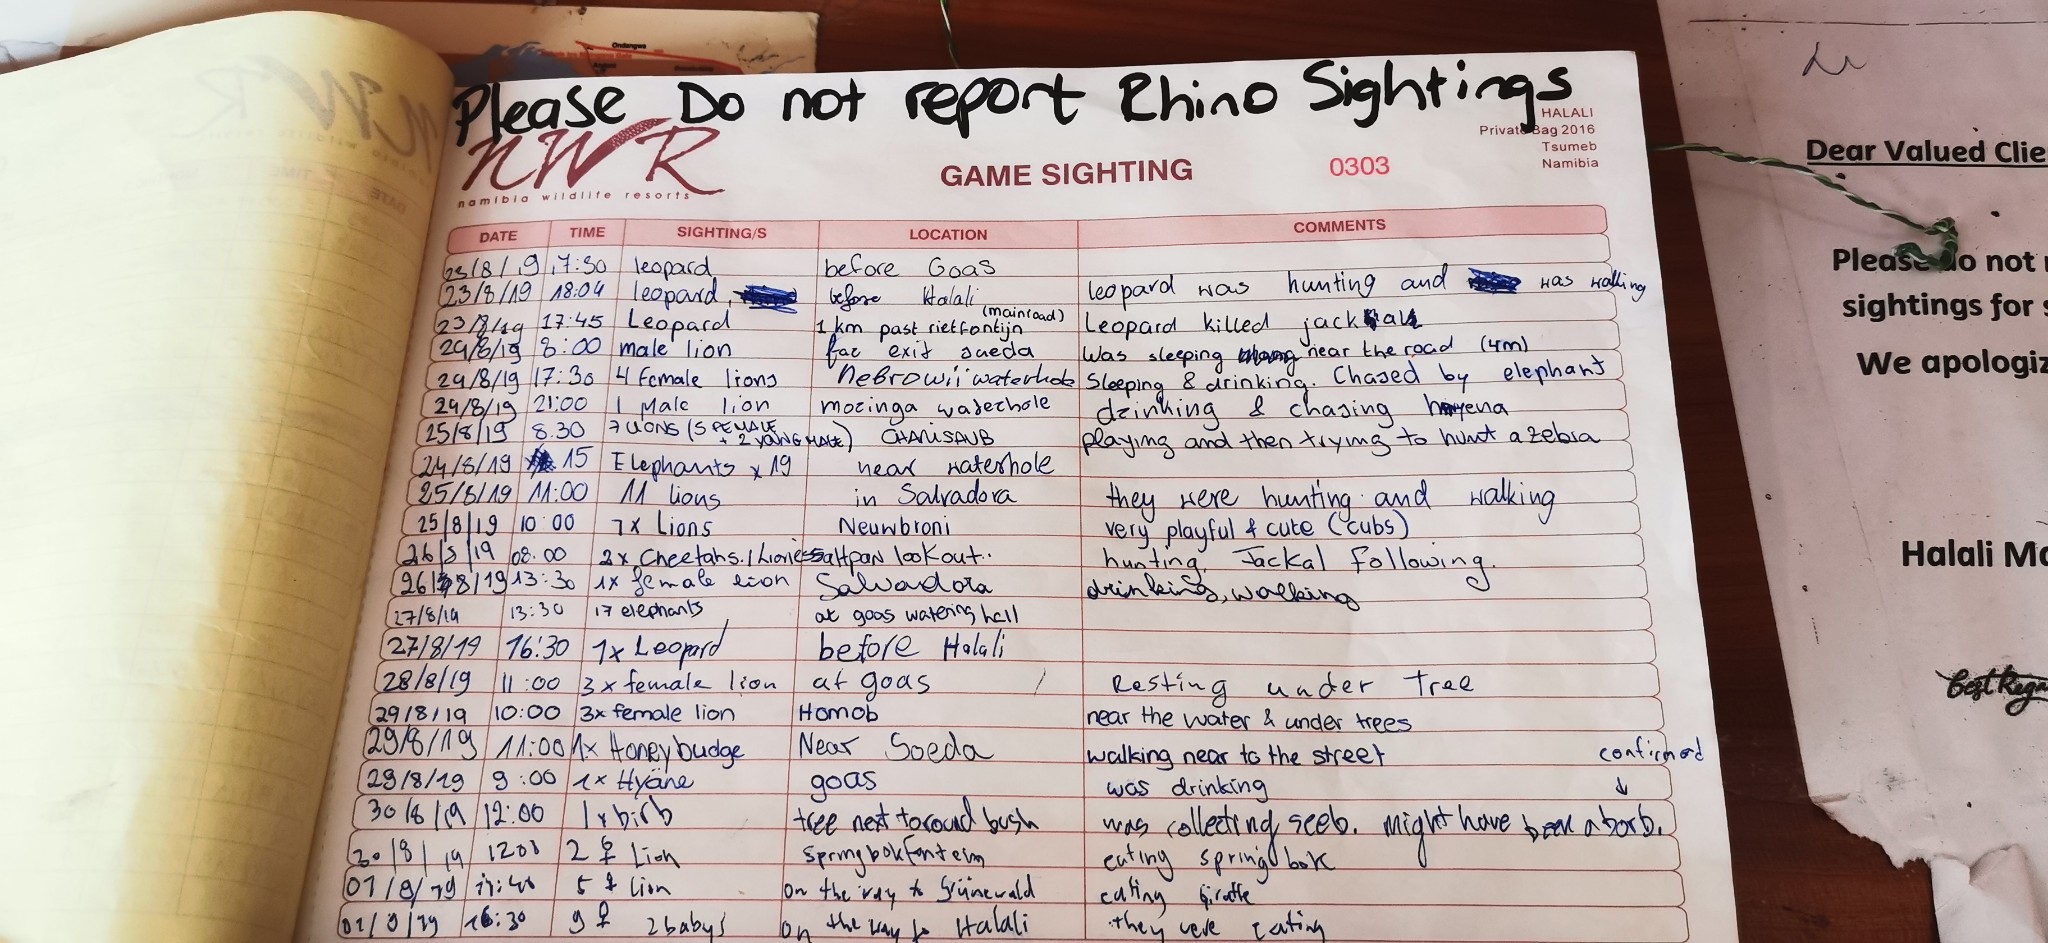 Please Do not report Rhino Sightings
NWR
namibia wildlife resorts
GAME SIGHTING
0303
HALALI
Private Bag 2016
Tsumeb
Namibia
DATE TIME SIGHTING/S LOCATION COMMENTS
23/8/19 17:30 leopard before Goas
23/8/19 18:04 leopard before Halali (mainroad) leopard was hunting and was walking
23/8/19 17:45 Leopard 1 km past rietfontijn Leopard killed jackal
24/8/19 8:00 male lion far exit sueda was sleeping near the road (4m)
24/8/19 17:30 4 female lions Nebrowii waterhole Sleeping & drinking. Chased by elephant
24/8/19 21:00 1 Male lion moringa waterhole drinking & chasing hyena
25/8/19 8.30 7 LIONS (5 FEMALE + 2 YOUNG MALE) CHARISAUB playing and then trying to hunt a zebra
24/8/19 15 Elephants x 19 near waterhole
25/8/19 11:00 11 lions in Salvadora they were hunting and walking
25/8/19 10:00 7x Lions Neuwbroni very playful & cute (cubs)
26/8/19 08:00 2x Cheetahs. saltpan lookout.. hunting. Jackal following.
26/8/19 13:30 1x female lion Salvadora drinking, walking
27/8/19 13:30 17 elephants at goas watering hall
27/8/19 16:30 1x Leopard before Halali
28/8/19 11:00 3x female lion at goas Resting under Tree
29/8/19 10:00 3x female lion Homob near the water & under trees
29/8/19 11:00 1x Honeybudge Near Soeda walking near to the street
29/8/19 9:00 1x Hyäne goas was drinking
confirmed
↓
30/8/19 12:00 1x birb tree next to round bush was collecting seeb. might have been a borb.
30/8/19 1200 2 ♀ Lion Springbokfontein eating springbok
01/9/19 5 ♀ lion on the way to Grünewald eating giraffe
01/9/19 16:30 9 ♀ 2 babys on the way to Halali they were eating
Ondangwa
Dear Valued Clie
Please do not r
sightings for s
We apologiz
Halali Ma
Best Rega